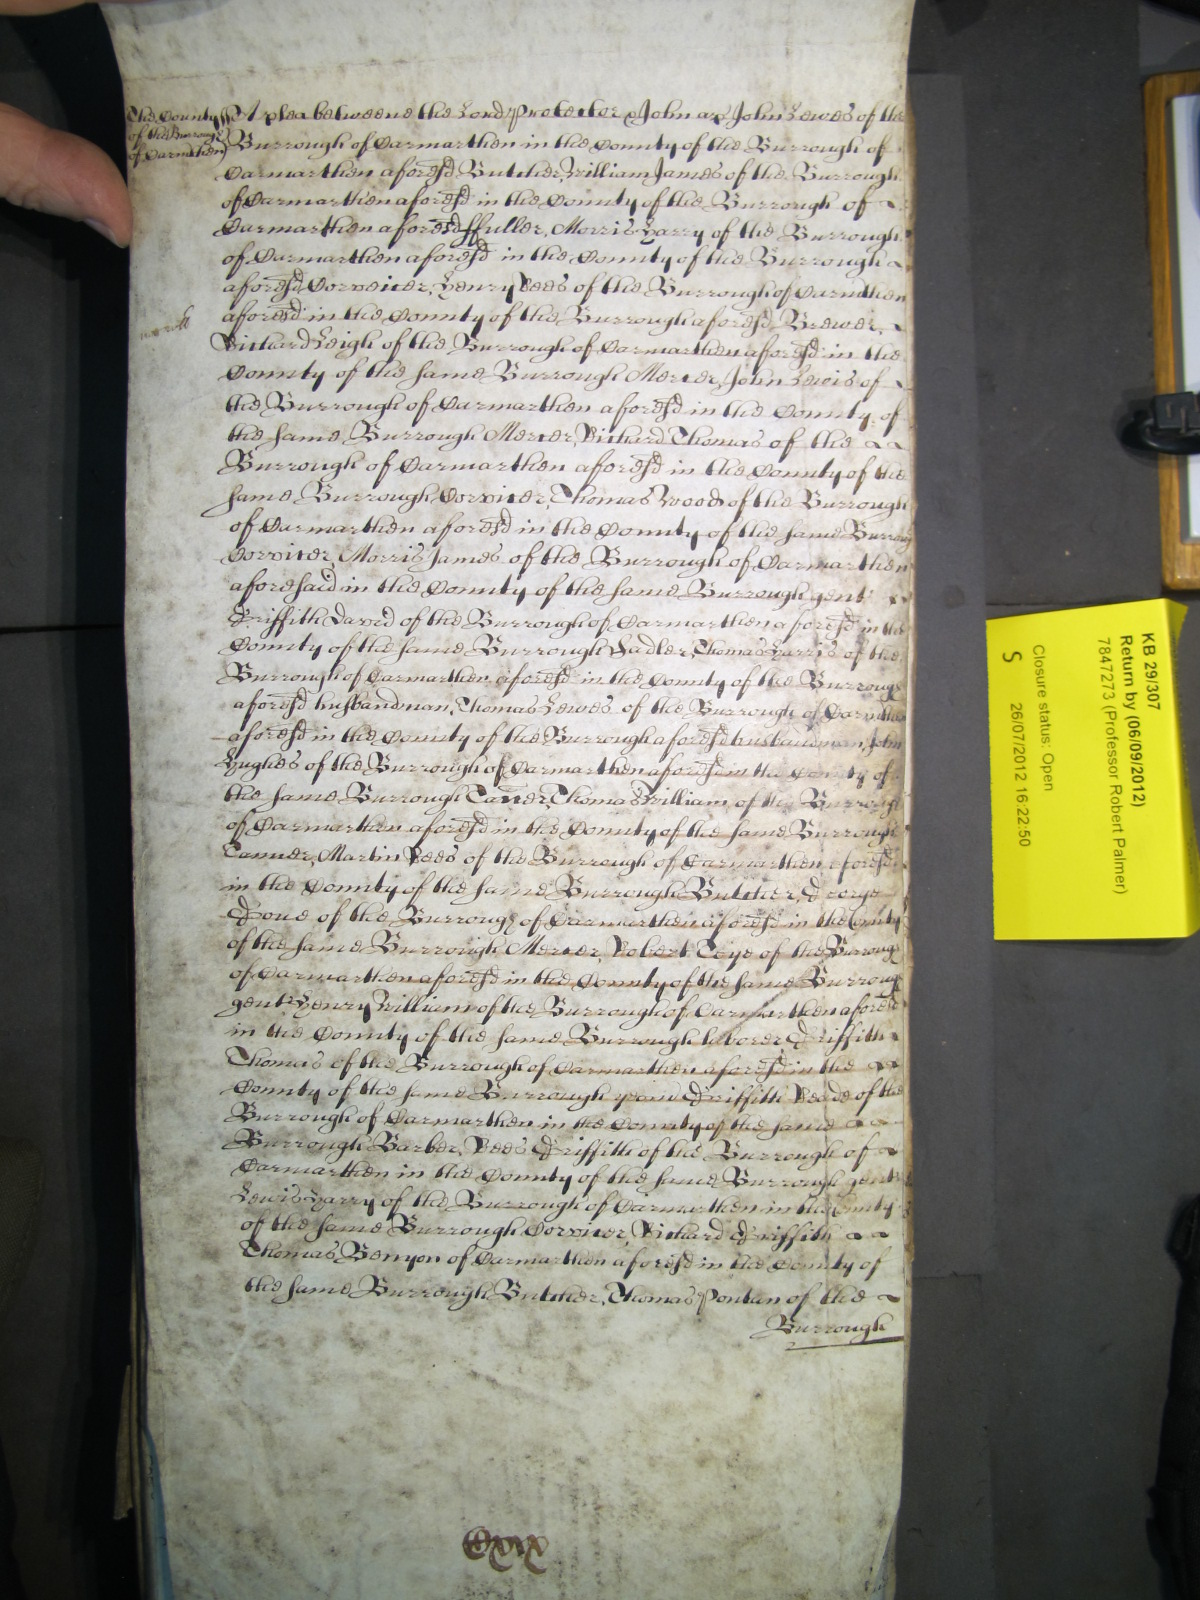 The County
of the Burrough
of Carmthen
A plea betweene the Lord Protector & John ap John Lewes of the
Burrough of Carmarthen in the County of the Burrough of
Carmarthen aforesd Butcher, William James of the Burrough
of Carmarthen aforesd in the County of the Burrough of
Carmarthen aforesd ffuller, Morris Harry of the Burrough
of Carmarthen aforesd in the County of the Burrough
aforesd Corvicer, Henry Rees of the Burrough of Carmthen
aforesd in the County of the Burrough aforesd Brewer,
Richard Leigh of the Burrough of Carmarthen aforesd in the
County of the same Burrough Mercer, John Lewis of
the Burrough of Carmarthen aforesd in the County of
the same Burrough Mercer, Richard Thomas of the
Burrough of Carmarthen aforesd in the County of the
same Burrough Corvicer, Thomas Wood of the Burrough
of Carmarthen aforesd in the County of the same Burroug
Corvicer, Morris James of the Burrough of Carmarthen
aforesaid in the County of the same Burrough gent
Griffith David of the Burrough of Carmarthen aforesd in the
County of the same Burrough Sadler, Thomas Harris of the
Burrough of Carmarthen aforesd in the County of the Burroug
aforesd husbandman, Thomas Lewes of the Burrough of Carmthen
aforesd in the County of the Burrough aforesd husbandman, John
Hughes of the Burrough of Carmarthen aforesd in the County of
the same Burrough Tanner, Thomas William of the Burrough
of Carmarthen aforesd in the County of the same Burrough
Tanner, Martin Rees of the Burrough of Carmarthen aforesd
in the County of the same Burrough Butcher, George
of the Burrough of Carmarthen aforesd in the County
of the same Burrough Mercer, Robert Toye of the Burroug
of Carmarthen aforesd in the County of the same Burroug
gent Henry William of the Burrough of Carmarthen aforesd
in the County of the same Burrough laborer Griffith
Thomas of the Burrough of Carmarthen aforesd in the
County of the same Burrough Griffith Reade of the
Burrough of Carmarthen in the County of the same
Burrough Barber, Rees Griffith of the Burrough of
Carmarthen in the County of the same Burrough gent
Lewis Harry of the Burrough of Carmarthen in the County
of the same Burrough Corvicer, Richard Griffith
Thomas Benyon of Carmarthen aforesd in the County of
the same Burrough Butcher, Thomas Ponton of the
Burrough
KB 29/307
Return by (06/09/2012)
7847273 (Professor Robert Palmer)
Closure status: Open
S 26/07/2012 16:22:50